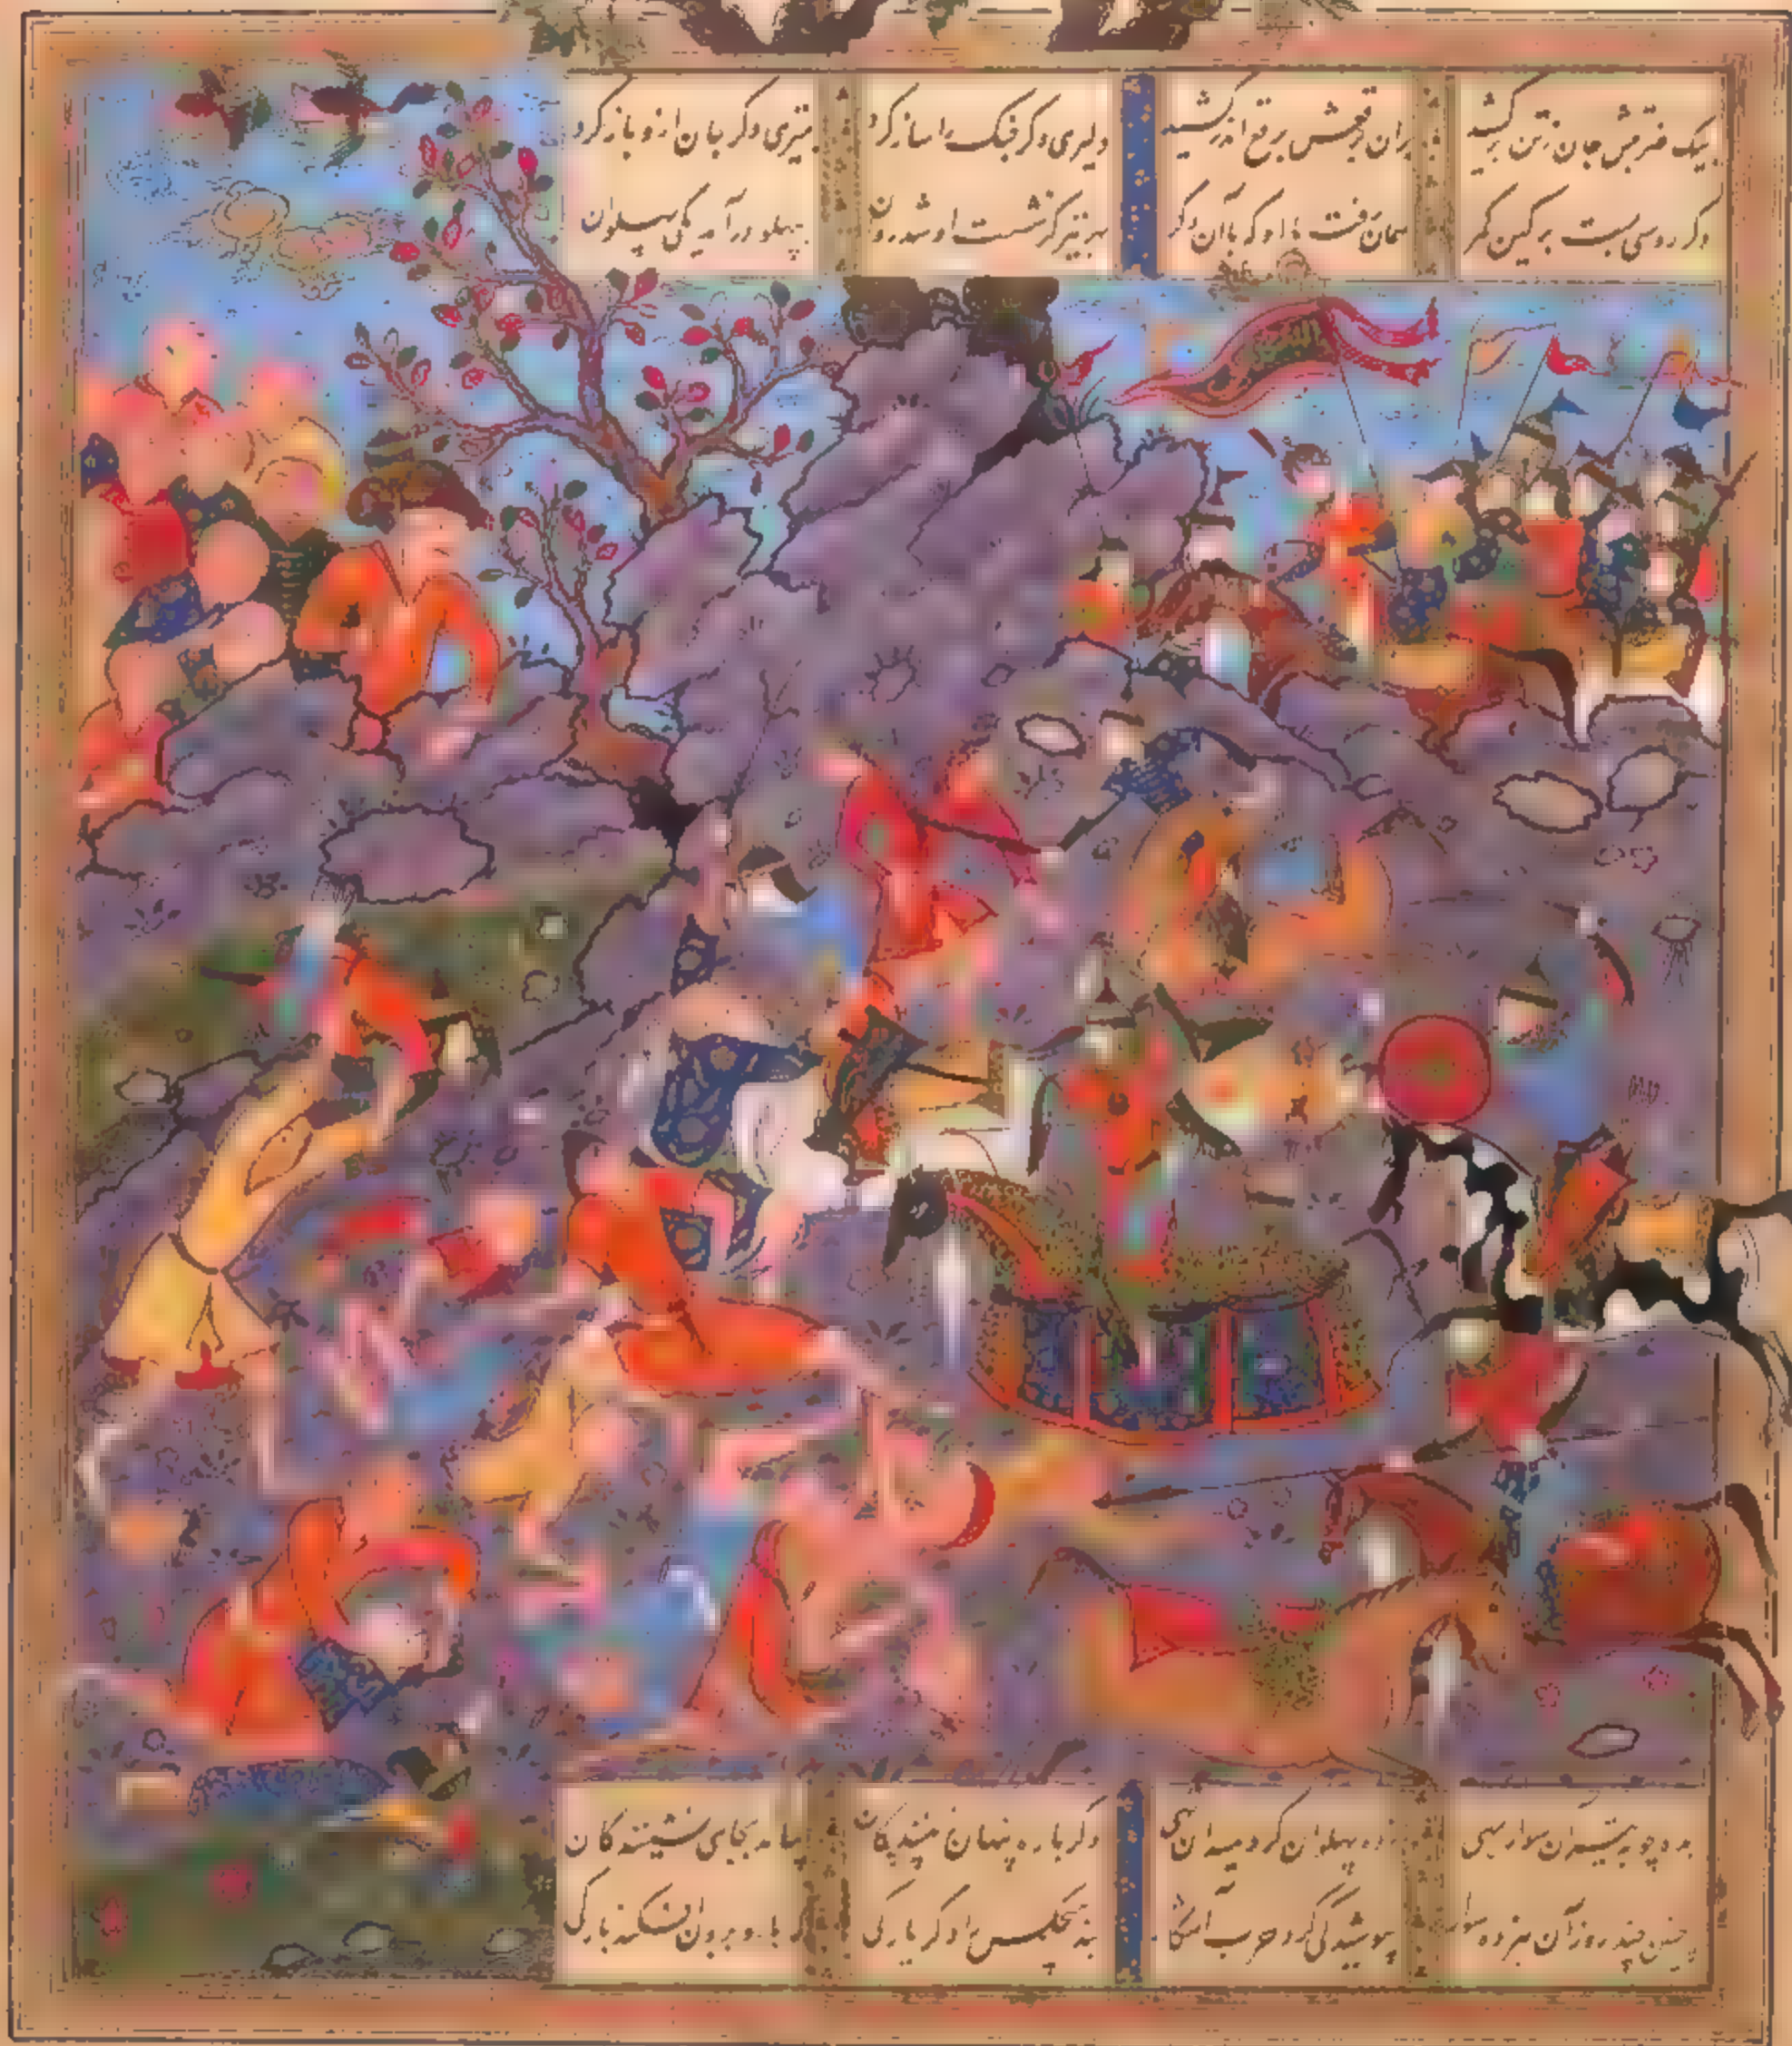 بیک ضربتش جان ز تن برکشید بران رقعش برقع اندر کشید دلیری دگر جنگ را ساز کرد بتیزی دگر جان ازو باز کرد
دگر روسی بست بر کین کمر همان رفت با او که با آن دگر بهر تیر کز شست او شد روان به پهلو درآمد یکی پهلوان
بده چوبه تیر آن سوار بهی زده پهلوان کرد میدان تهی دگر باره پنهان ز بینندگان بیامد بجای نشینندگان
چنین چند روز آن نبرده سوار بپوشیدگی کرد حرب آشکار نبد هیچکس را دگر یارگی که با او برون افکند بارگی